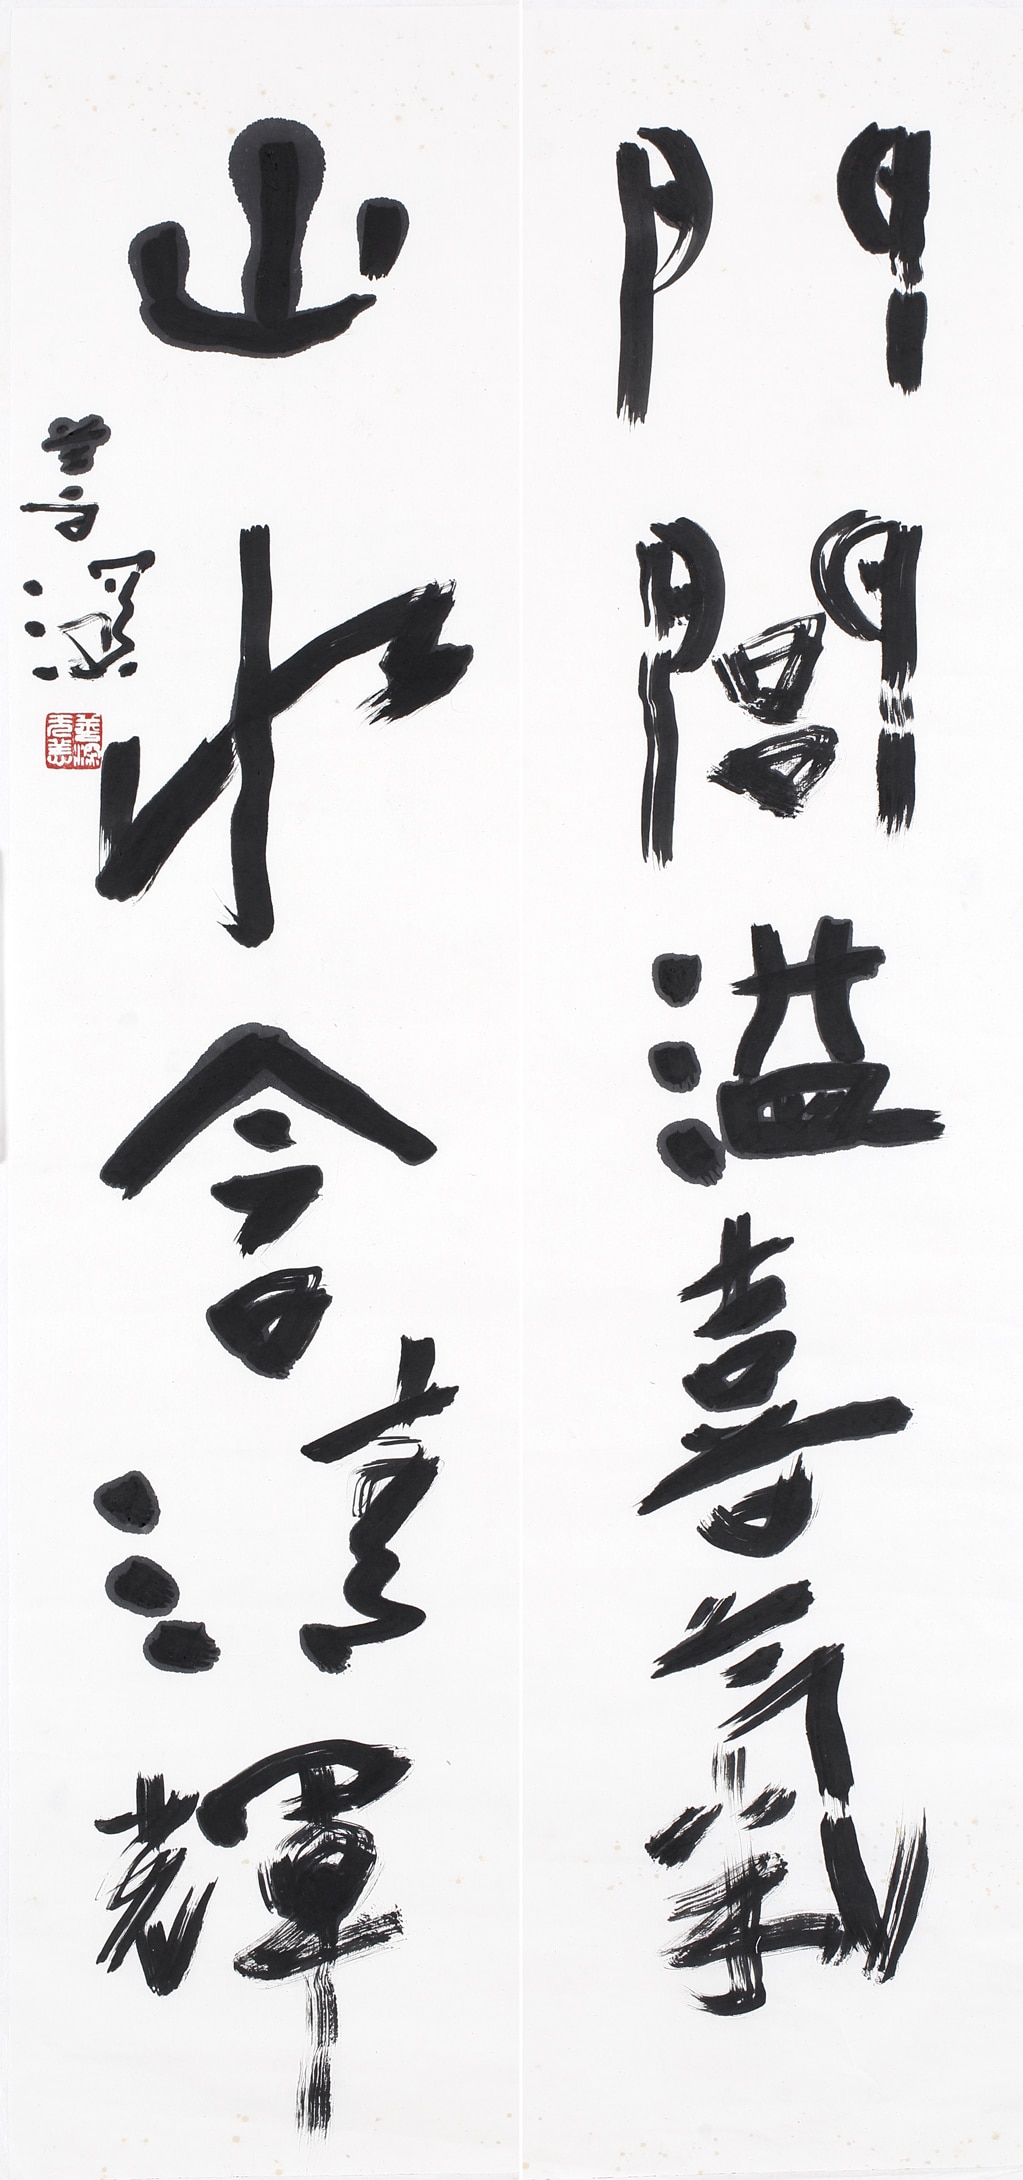 門閭溢喜氣
山水含清輝
善深